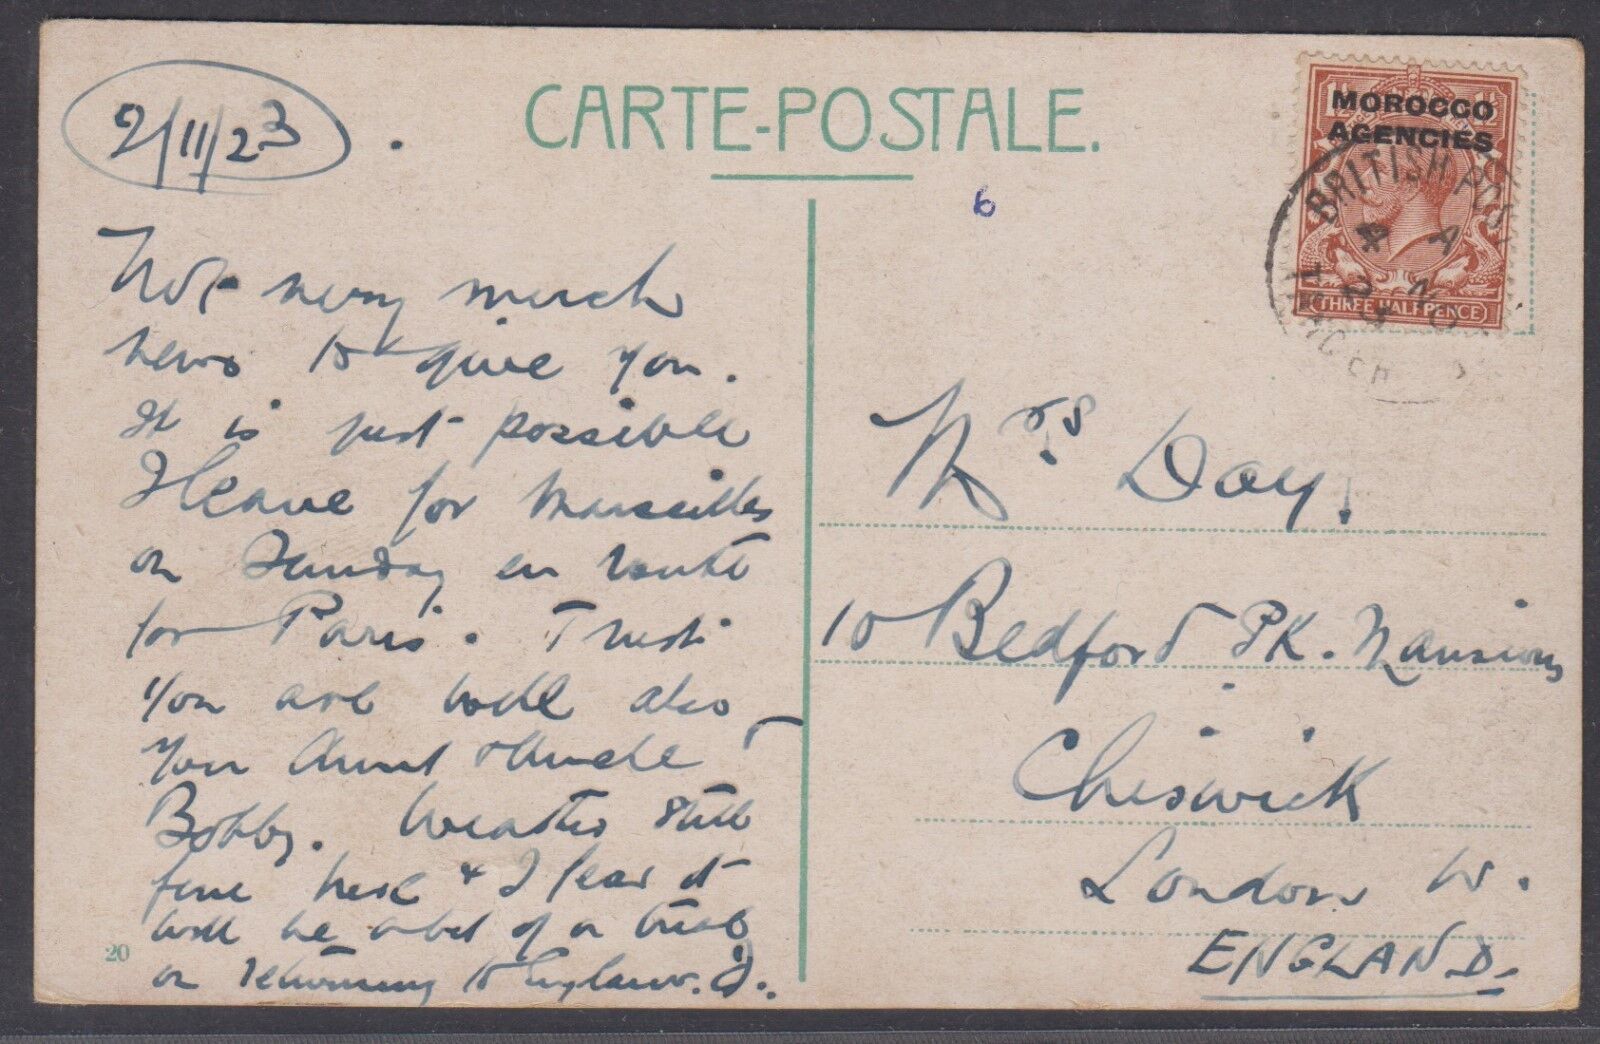 2/11/23
CARTE-POSTALE.
6
MOROCCO
AGENCIES
THREE HALFPENCE
BRITISH POS
Not very much
news to give you.
It is just possible
I leave for Marseilles
on Sunday en route
for Paris. Trust
you are well also
your Aunt & Uncle &
Bobby. Weather still
fine here & I fear it
will be a bit of a trial
on returning to England. D.
20
Mrs Day.
10 Bedford PK. Mansions
Chiswick
London W.
ENGLAND.